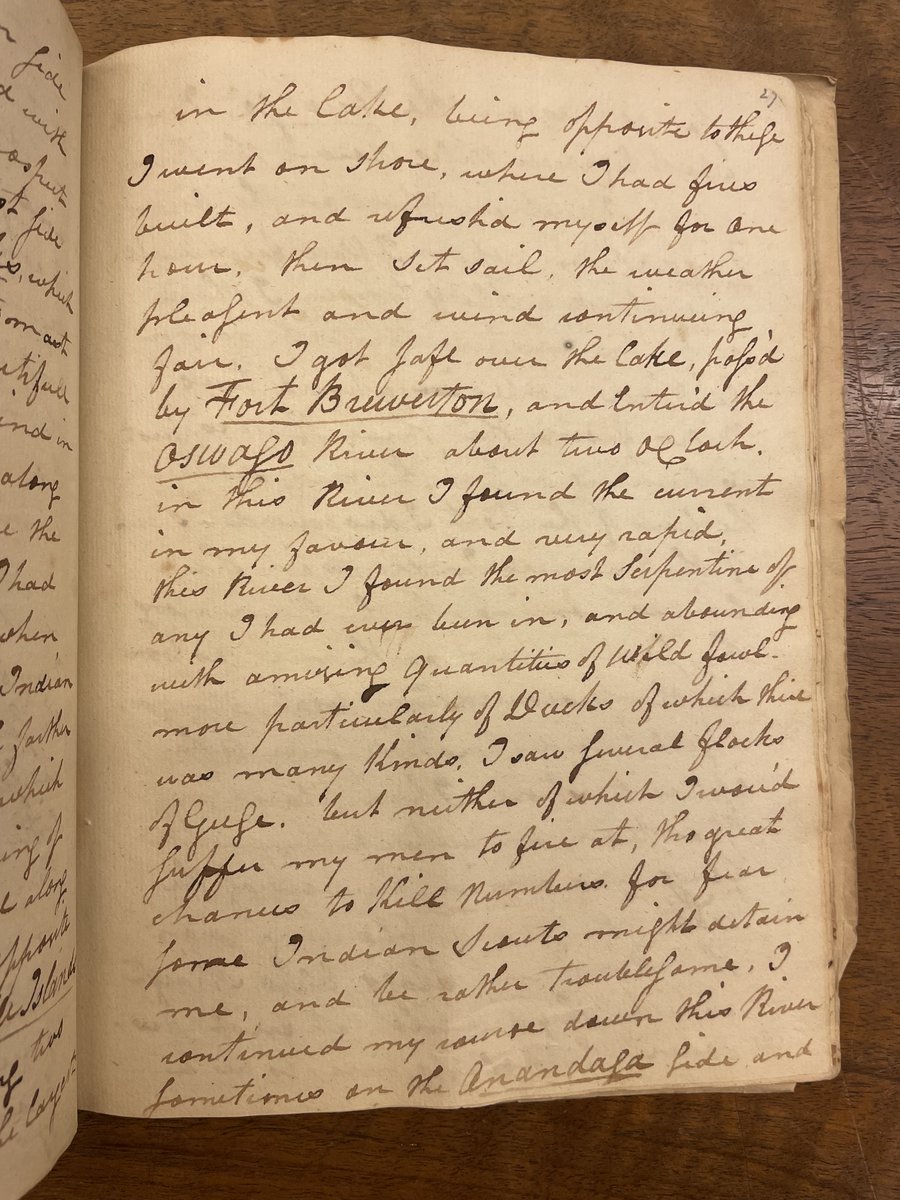 side
with
prospect
side
which
from
utifull
wind in
along
the
I had
when
Indian
farther
which
ing of
along
opposite
Islands
two
the largest
27
in the Lake, being opposite to these
I went on shore, where I had fires
built, and refresh'd myself for one
hour. then set sail, the weather
pleasent and wind continuing
fair. I got safe over the Lake, pass'd
by Fort Brewerton, and Enter'd the
Oswago River about two oClock.
in this River I found the current
in my favour, and very rapid,
this River I found the most Serpentine of
any I had ever been in, and abounding
with amizing Quantities of Wild fowl.
more particularly of Ducks of which their
was many Kinds. I saw several flocks
of Geese. but neither of which I wou'd
suffer my men to fire at, tho great
chances to Kill Numbers. for fear
some Indian Scouts might detain
me, and be rather troublesome. I
continued my course down this River
sometimes on the Anandaga side and